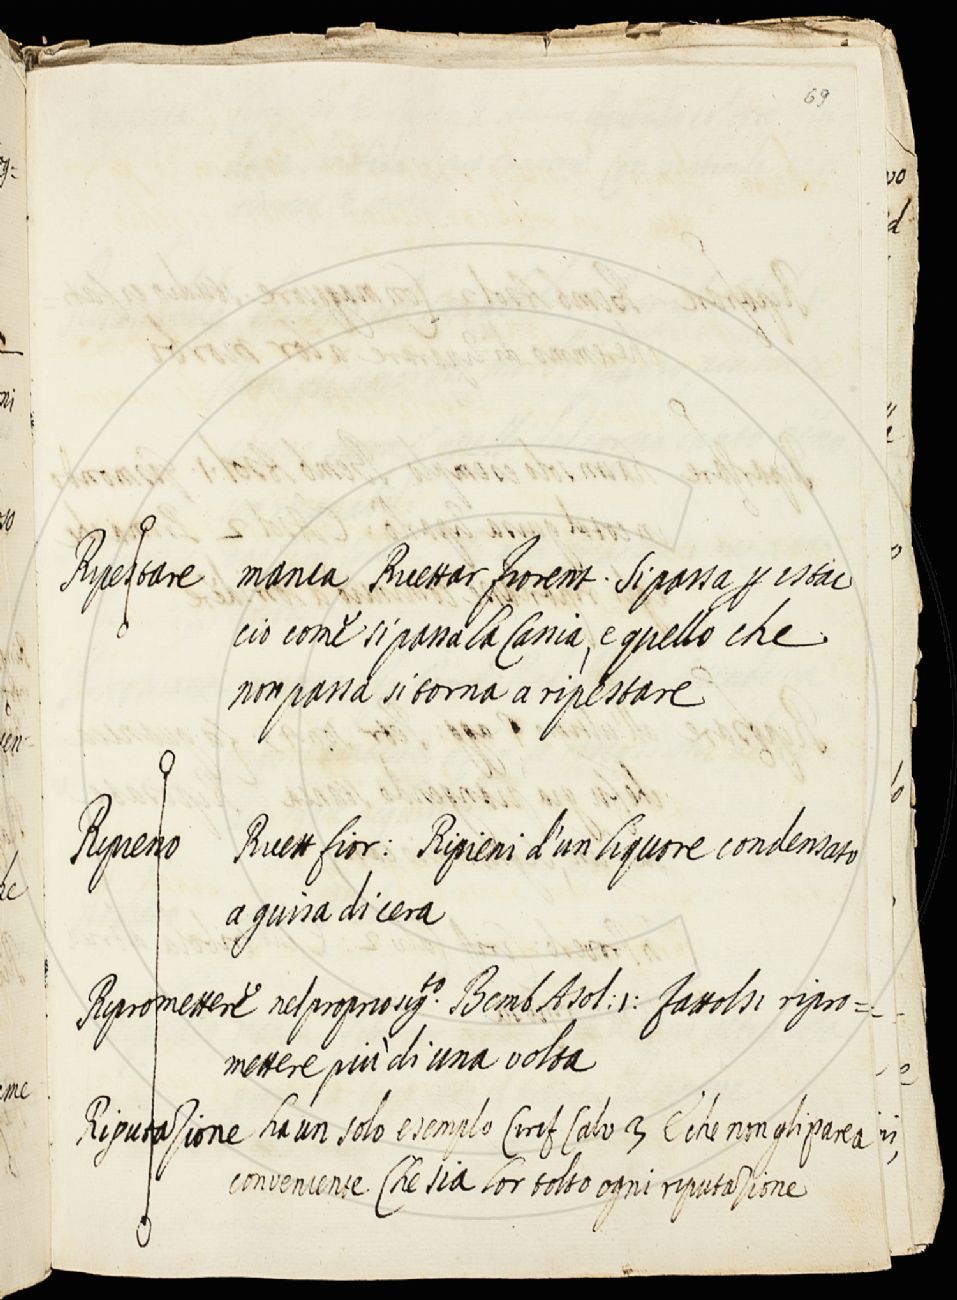 69
Ripestare manca Ricettar fiorent. Si passa p istac
cio come si passa la Cassia, e quello che
non passa si torna a ripestare
Ripieno Ricett fior: Ripieni d'un liquore condensato
a guisa di cera
Ripromettere nel proprio sig.to Bemb Asol: 1: fattolsi ripro=
mettere più di una volta
Riputazione ha un solo esempio Circif Calv 3 E che non gli parea
conveniente Che sia lor tolto ogni riputazione